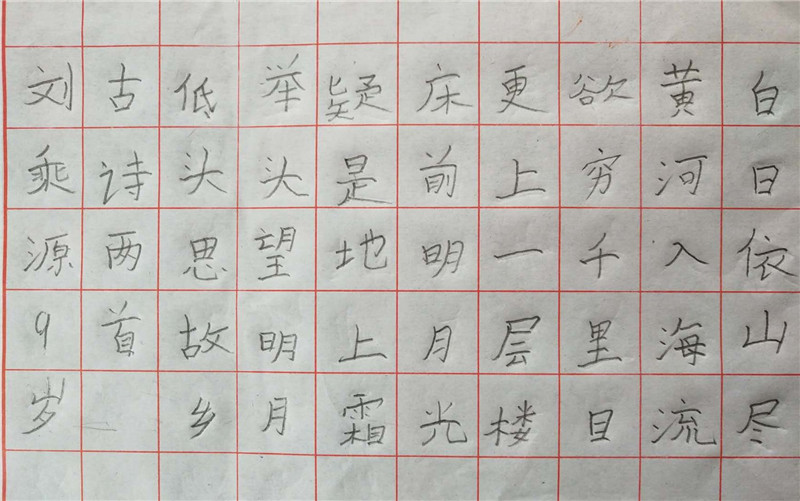 白日依山尽
黄河入海流
欲穷千里目
更上一层楼
床前明月光
疑是地上霜
举头望明月
低头思故乡
古诗两首
刘乘源9岁